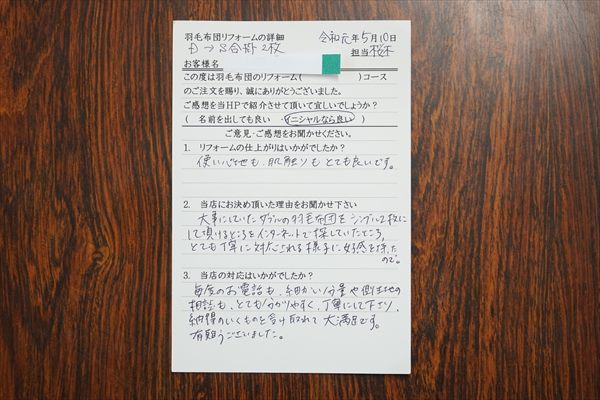 羽毛布団リフォームの詳細
令和元年5月10日
D→S合掛2枚
担当 桜木
お客様名
この度は羽毛布団のリフォーム( )コース
のご注文を賜り、誠にありがとうございました。
ご感想を当HPで紹介させて頂いて宜しいでしょうか?
( 名前を出しても良い ・イニシャルなら良い )
ご意見・ご感想をお聞かせください。
1. リフォームの仕上がりはいかがでしたか?
使い心地も、肌触りもとても良いです。
2. 当店にお決め頂いた理由をお聞かせ下さい
大事にしていたダブルの羽毛布団をシングル2枚に
して頂けるところをインターネットで探していたところ、
とても丁寧に対応される様子に好感を持った
ので。
3. 当店の対応はいかがでしたか?
毎度のお電話も、細かい分量や側生地の
相談も、とても分かりやすく、丁寧にして下さり、
納得のいくものを受け取れて大満足です。
有難うございました。